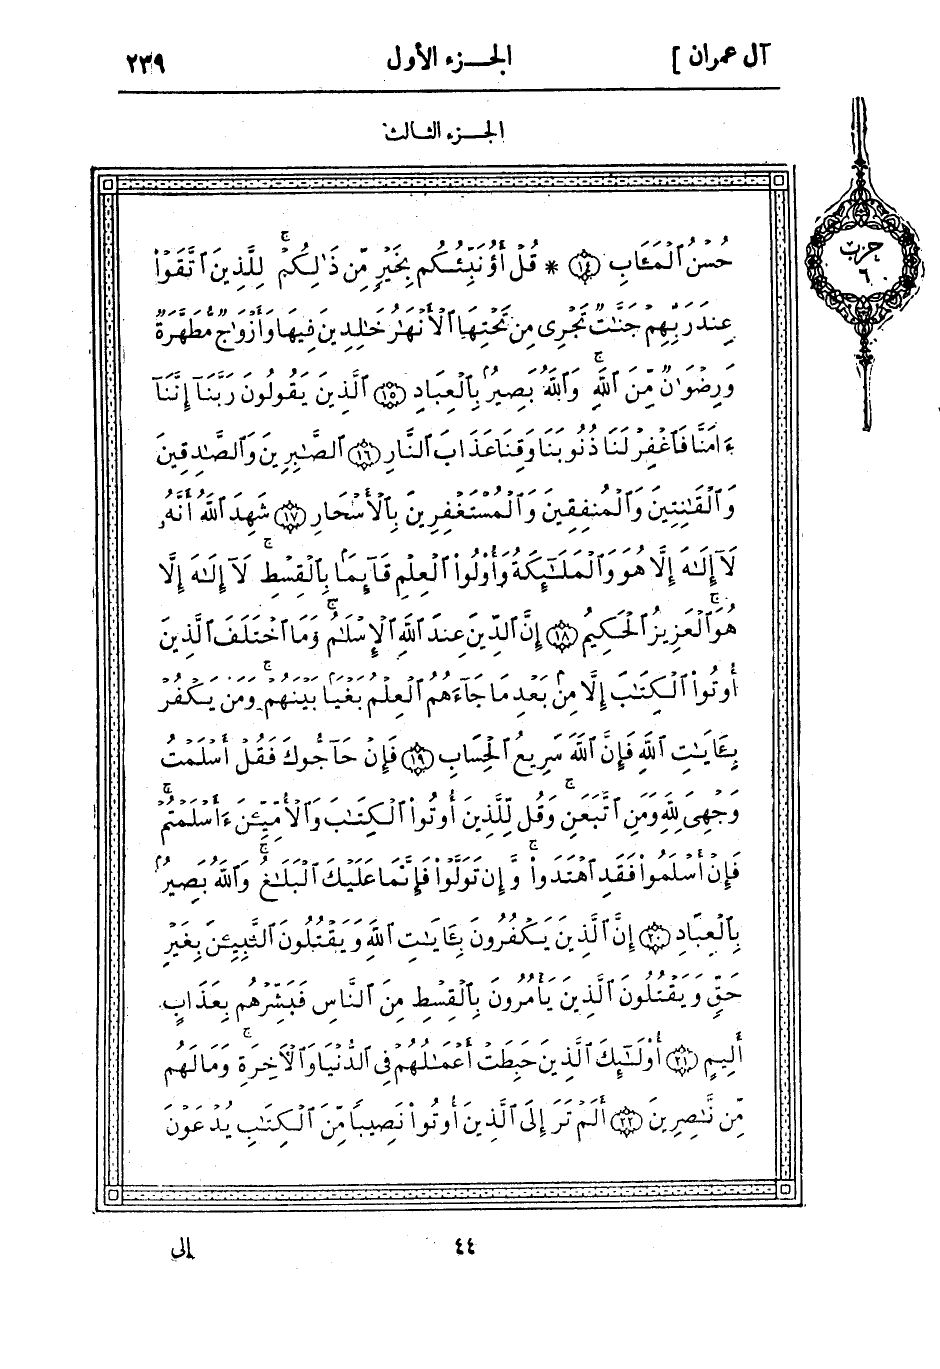 آل عمران ] الجـــزء الأول ٢٣٩
الجـــزء الثـالث
حزب
٦
حُسْنُ ٱلْمَـَٔابِ ﴿١٤﴾ * قُلْ أَؤُنَبِّئُكُم بِخَيْرٍ مِّن ذَٰلِكُمْ ۚ لِلَّذِينَ ٱتَّقَوْا۟
عِندَ رَبِّهِمْ جَنَّـٰتٌ تَجْرِى مِن تَحْتِهَا ٱلْأَنْهَـٰرُ خَـٰلِدِينَ فِيهَا وَأَزْوَٰجٌ مُّطَهَّرَةٌ
وَرِضْوَٰنٌ مِّنَ ٱللَّهِ ۗ وَٱللَّهُ بَصِيرٌۢ بِٱلْعِبَادِ ﴿١٥﴾ ٱلَّذِينَ يَقُولُونَ رَبَّنَآ إِنَّنَآ
ءَامَنَّا فَٱغْفِرْ لَنَا ذُنُوبَنَا وَقِنَا عَذَابَ ٱلنَّارِ ﴿١٦﴾ ٱلصَّـٰبِرِينَ وَٱلصَّـٰدِقِينَ
وَٱلْقَـٰنِتِينَ وَٱلْمُنفِقِينَ وَٱلْمُسْتَغْفِرِينَ بِٱلْأَسْحَارِ ﴿١٧﴾ شَهِدَ ٱللَّهُ أَنَّهُۥ
لَآ إِلَـٰهَ إِلَّا هُوَ وَٱلْمَلَـٰٓئِكَةُ وَأُو۟لُوا۟ ٱلْعِلْمِ قَآئِمًۢا بِٱلْقِسْطِ ۚ لَآ إِلَـٰهَ إِلَّا
هُوَ ٱلْعَزِيزُ ٱلْحَكِيمُ ﴿١٨﴾ إِنَّ ٱلدِّينَ عِندَ ٱللَّهِ ٱلْإِسْلَـٰمُ ۗ وَمَا ٱخْتَلَفَ ٱلَّذِينَ
أُوتُوا۟ ٱلْكِتَـٰبَ إِلَّا مِنۢ بَعْدِ مَا جَآءَهُمُ ٱلْعِلْمُ بَغْيًۢا بَيْنَهُمْ ۗ وَمَن يَكْفُرْ
بِـَٔايَـٰتِ ٱللَّهِ فَإِنَّ ٱللَّهَ سَرِيعُ ٱلْحِسَابِ ﴿١٩﴾ فَإِنْ حَآجُّوكَ فَقُلْ أَسْلَمْتُ
وَجْهِىَ لِلَّهِ وَمَنِ ٱتَّبَعَنِ ۗ وَقُل لِّلَّذِينَ أُوتُوا۟ ٱلْكِتَـٰبَ وَٱلْأُمِّيِّـۧنَ ءَأَسْلَمْتُمْ ۚ
فَإِنْ أَسْلَمُوا۟ فَقَدِ ٱهْتَدَوا۟ ۖ وَّإِن تَوَلَّوْا۟ فَإِنَّمَا عَلَيْكَ ٱلْبَلَـٰغُ ۗ وَٱللَّهُ بَصِيرٌۢ
بِٱلْعِبَادِ ﴿٢٠﴾ إِنَّ ٱلَّذِينَ يَكْفُرُونَ بِـَٔايَـٰتِ ٱللَّهِ وَيَقْتُلُونَ ٱلنَّبِيِّـۧنَ بِغَيْرِ
حَقٍّ وَيَقْتُلُونَ ٱلَّذِينَ يَأْمُرُونَ بِٱلْقِسْطِ مِنَ ٱلنَّاسِ فَبَشِّرْهُم بِعَذَابٍ
أَلِيمٍ ﴿٢١﴾ أُو۟لَـٰٓئِكَ ٱلَّذِينَ حَبِطَتْ أَعْمَـٰلُهُمْ فِى ٱلدُّنْيَا وَٱلْـَٔاخِرَةِ ۚ وَمَا لَهُم
مِّن نَّـٰصِرِينَ ﴿٢٢﴾ أَلَمْ تَرَ إِلَى ٱلَّذِينَ أُوتُوا۟ نَصِيبًا مِّنَ ٱلْكِتَـٰبِ يُدْعَوْنَ
٤٤ إلى